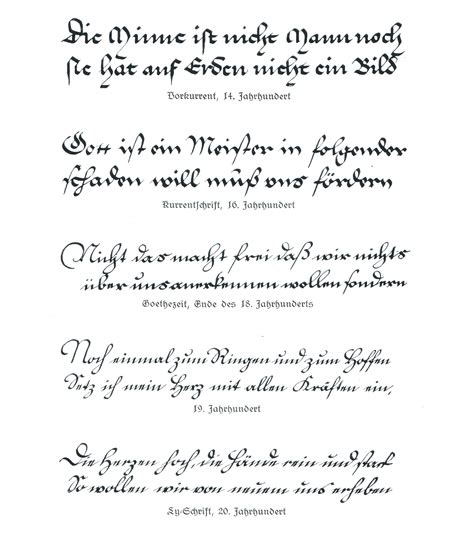 Die Minne ist nicht Mann noch
sie hat auf Erden nicht ein Bild
Vorkurrent, 14. Jahrhundert
Gott ist ein Meister in folgender
schaden will muß uns fördern
Kurrentschrift, 16. Jahrhundert
Nicht das macht frei daß wir nichts
über uns anerkennen wollen sondern
Goethezeit, Ende des 18. Jahrhunderts
Noch einmal zum Ringen und zum Hoffen
Setz ich mein Herz mit allen Kräften ein,
19. Jahrhundert
Die Herzen hoch, die Hände rein und stark
So wollen wir von neuem uns erheben
Ly-Schrift, 20. Jahrhundert